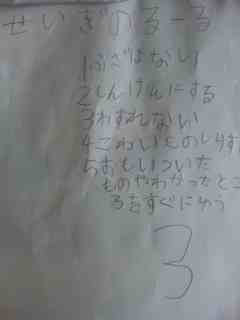 せいぎのるーる
1ふざけない
2しんけんにする
3わすれない
4こわいものしらず
5おもいついた
ものやわかったとこ
ろをすぐにゆう
3